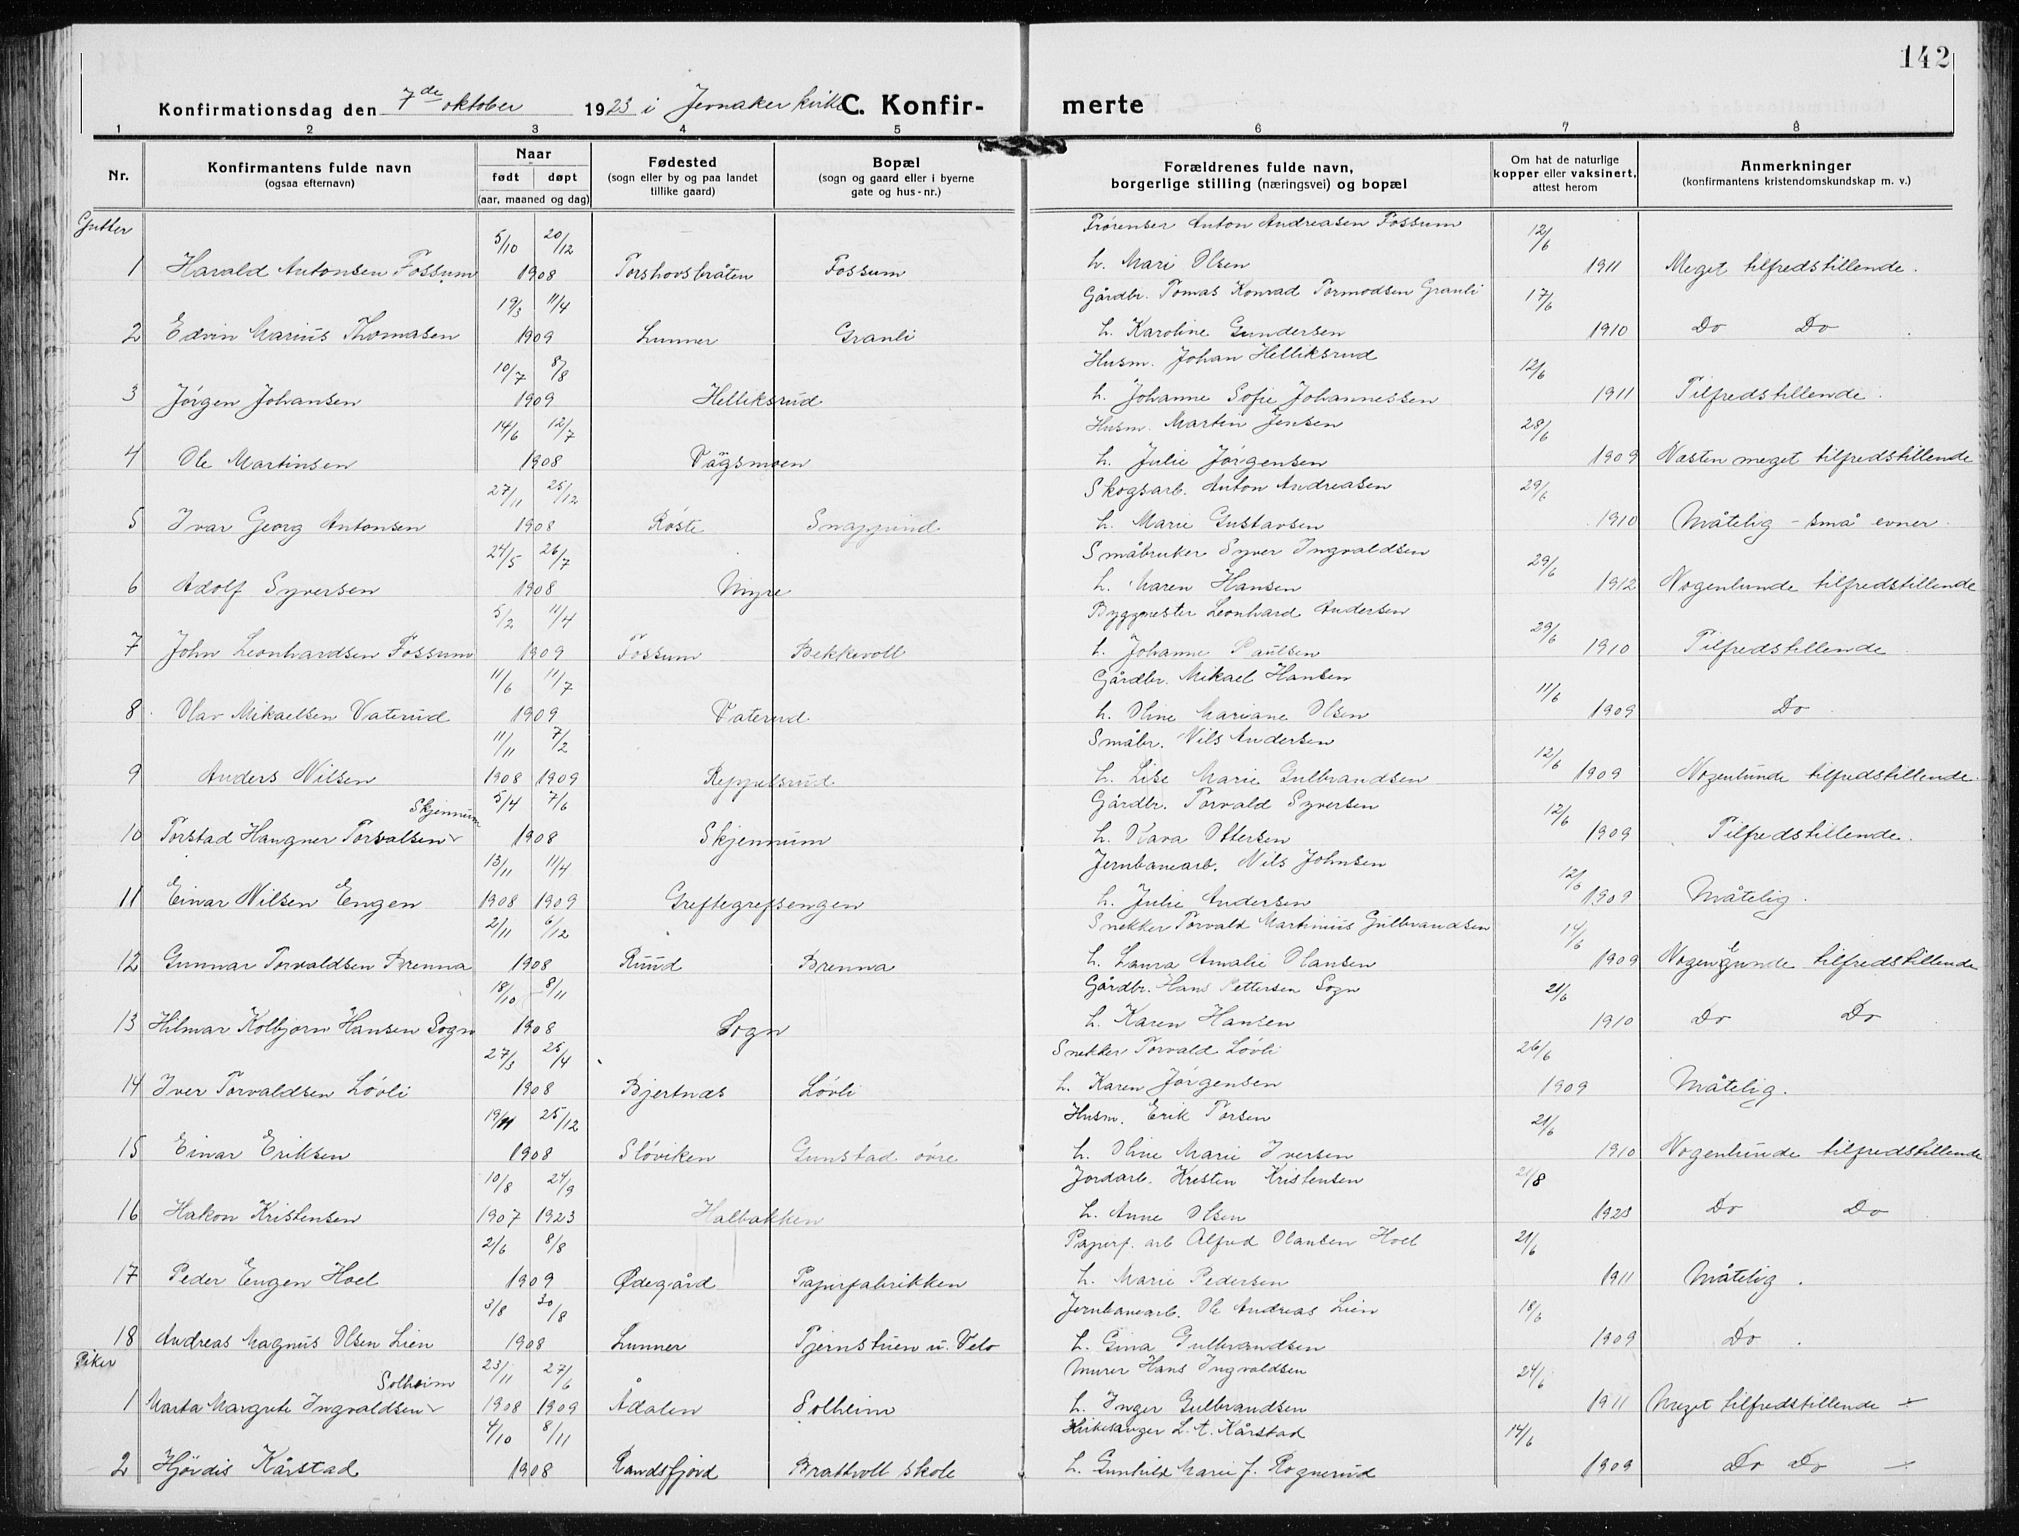 142
Konfirmationsdag den 7de oktober 1923 i Jevnaker kirke C. Konfir- merte
1 2 3 4 5 6 7 8
Nr. Konfirmantens fulde navn (ogsaa efternavn) Naar født døpt (aar, maaned og dag) Fødested (sogn eller by og paa landet tillike gaard) Bopæl (sogn og gaard eller i byerne gate og hus-nr.) Forældrenes fulde navn, borgerlige stilling (næringsvei) og bopæl Om hat de naturlige kopper eller vaksinert, attest herom Anmerkninger (konfirmantens kristendomskundskap m. v.)
Gutter
5/10 20/12 Anton Andreasen Fossum 12/6
1 Harald Antonsen Fossum 1908 Torshovsbråten Fossum h. Mari Olsen 1911 Meget tilfredstillende.
19/3 11/4 Gårdbr. Tomas Konrad Tormodsen Granli 17/6
2 Edvin Marius Thomasen 1909 Lunner Granli h. Karoline Gundersen 1910 Do Do
10/7 8/8 Husm. Johan Helliksrud 12/6
3 Jørgen Johansen 1909 Helliksrud h. Johanne Sofie Johannessen 1911 Tilfredstillende.
14/6 12/7 Husm. Martin Jensen 28/6
4 Ole Martinsen 1908 Vågsmoen h. Julie Jørgensen 1909 Næsten meget tilfredstillende
27/11 25/12 Skogsarb. Anton Andreasen 29/6
5 Ivar Georg Antonsen 1908 Røste h. Marie Gustavsen 1910 Måtelig - små evner.
24/5 26/7 Småbruker Syver Ingvaldsen 29/6
6 Adolf Syversen 1908 Myre h. Maren Hansen 1912 Nogenlunde tilfredstillende
5/2 11/4 Byggmester Leonhard Andersen 29/6
7 John Leonhardsen Fossum 1909 Fossum Bekkevoll h. Johanne Paulsen 1910 Tilfredstillende
11/6 11/7 Gårdbr. Mikael Hansen 11/6
8 Olav Mikaelsen Vaterud 1909 Vaterud h. Oline Mariane Olsen 1909 Do
11/11 7/2 Småbr. Nils Andersen 12/6
9 Anders Nilsen 1908 1909 Reppelsrud h. Lise Marie Gulbrandsen 1909 Nogenlunde tilfredstillende.
Skjennum 5/4 7/6 Gårdbr. Torvald Syversen 12/6
10 Torstad Hangner Torvalsen 1908 Skjennum h. Klara Ottersen 1909 Tilfredstillende.
13/11 11/4 Jernbanearb. Nils Johnsen 12/6
11 Einar Nilsen Engen 1908 1909 Greftegrefsengen h. Julie Andersen 1909 Måtelig.
2/11 6/12 Snekker Torvald Martinius Gulbrandsen 14/6
12 Gunnar Torvaldsen Brenna 1908 Ruud Brenna h. Laura Amalie Olansen 1909 Nogenlunde tilfredstillende
18/10 8/11 Gårdbr. Hans Pettersen Sogn 21/6
13 Hilmar Kolbjørn Hansen Sogn 1908 Sogn h. Karen Hansen 1910 Do Do
27/3 25/4 Snekker Torvald Løvli 26/6
14 Iver Torvaldsen Løvli 1908 Bjertnæs Løvli h. Karen Jørgensen 1909 Måtelig.
19/11 25/12 Husm. Erik Torsen 21/6
15 Einar Eriksen 1908 Sløviken Gunstad øvre h. Oline Marie Iversen 1910 Nogenlunde tilfredstillende
10/8 24/9 Jordarb. Kristen Kristensen 21/8
16 Hakon Kristensen 1907 1923 Halbakken h. Anne Olsen 1923 Do Do
2/6 8/8 Papirf. arb Alfred Olansen Hoel 21/6
17 Peder Eugen Hoel 1909 Ødegård Papirfabrikken h. Marie Pedersen 1911 Måtelig.
3/8 30/8 Jernbanearb. Ole Andreas Lien 18/6
18 Andreas Magnus Olsen Lien 1908 Lunner Tjernstuen u. Velo h. Gina Gulbrandsen 1909 Do.
Piker
Solheim 23/11 27/6 Murer Hans Ingvaldsen 24/6
1 Marta Margrete Ingvaldsen 1908 1909 Ådalen Solheim h. Inger Gulbrandsen 1911 Meget tilfredstillende
4/10 8/11 Kirkesanger L. A. Kårstad 14/6
2 Hjørdis Kårstad 1908 Randsfjord Brattvoll skole h. Gunhild Marie f. Rognerud 1909 Do Do